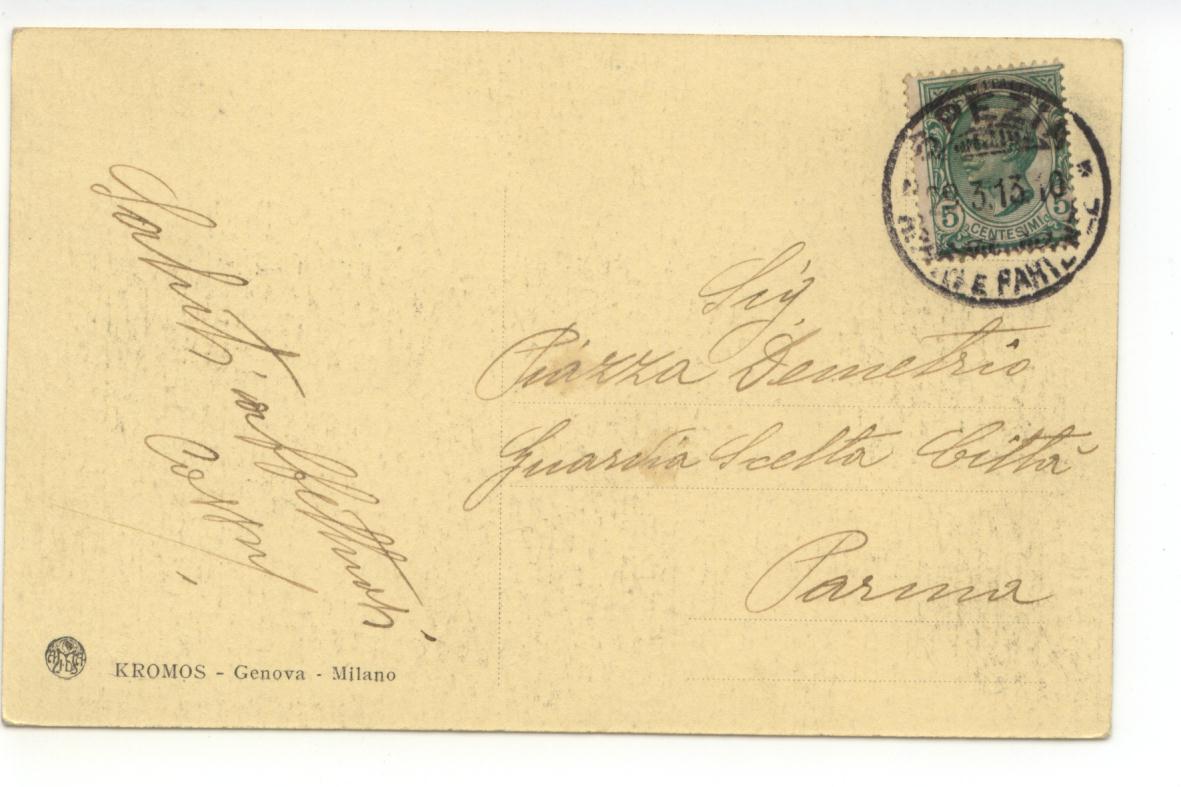 Saluti affettuosi
Sig.
Piazza Demetrio
Guardia Scelta Città
Parma
SPEZIA
3.13. 10
ARRIVI E PARTENZE
5 5
CENTESIMI
KROMOS - Genova - Milano